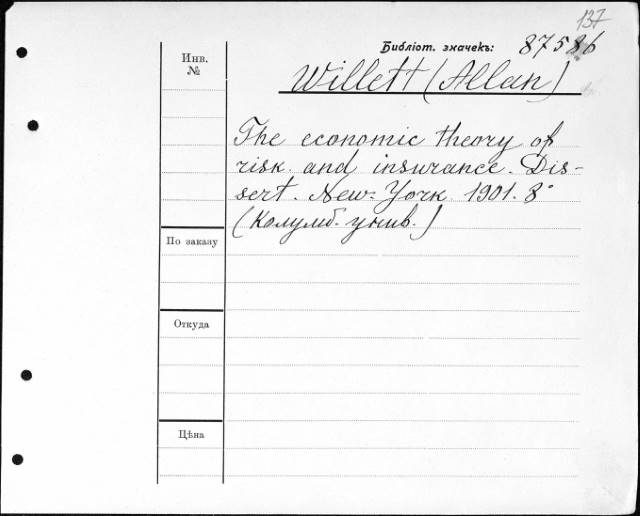 137
Библіот. значекъ: 87586
Инв. №
Willett (Allan)
The economic theory of
risk and insurance. Dis-
sert. New-York 1901. 8°
(Колумб. унив.)
По заказу
Откуда
Цѣна